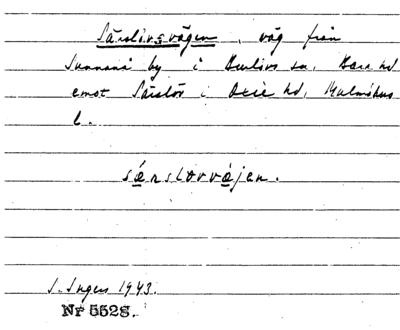 Särslövsvägen, väg från
Sunnanå by i Burlövs sn, Bara hd
emot Särslöv i Oxie hd, Malmöhus
l.
særslovväjen.
I. Ingers 1943.
Nr 5528.